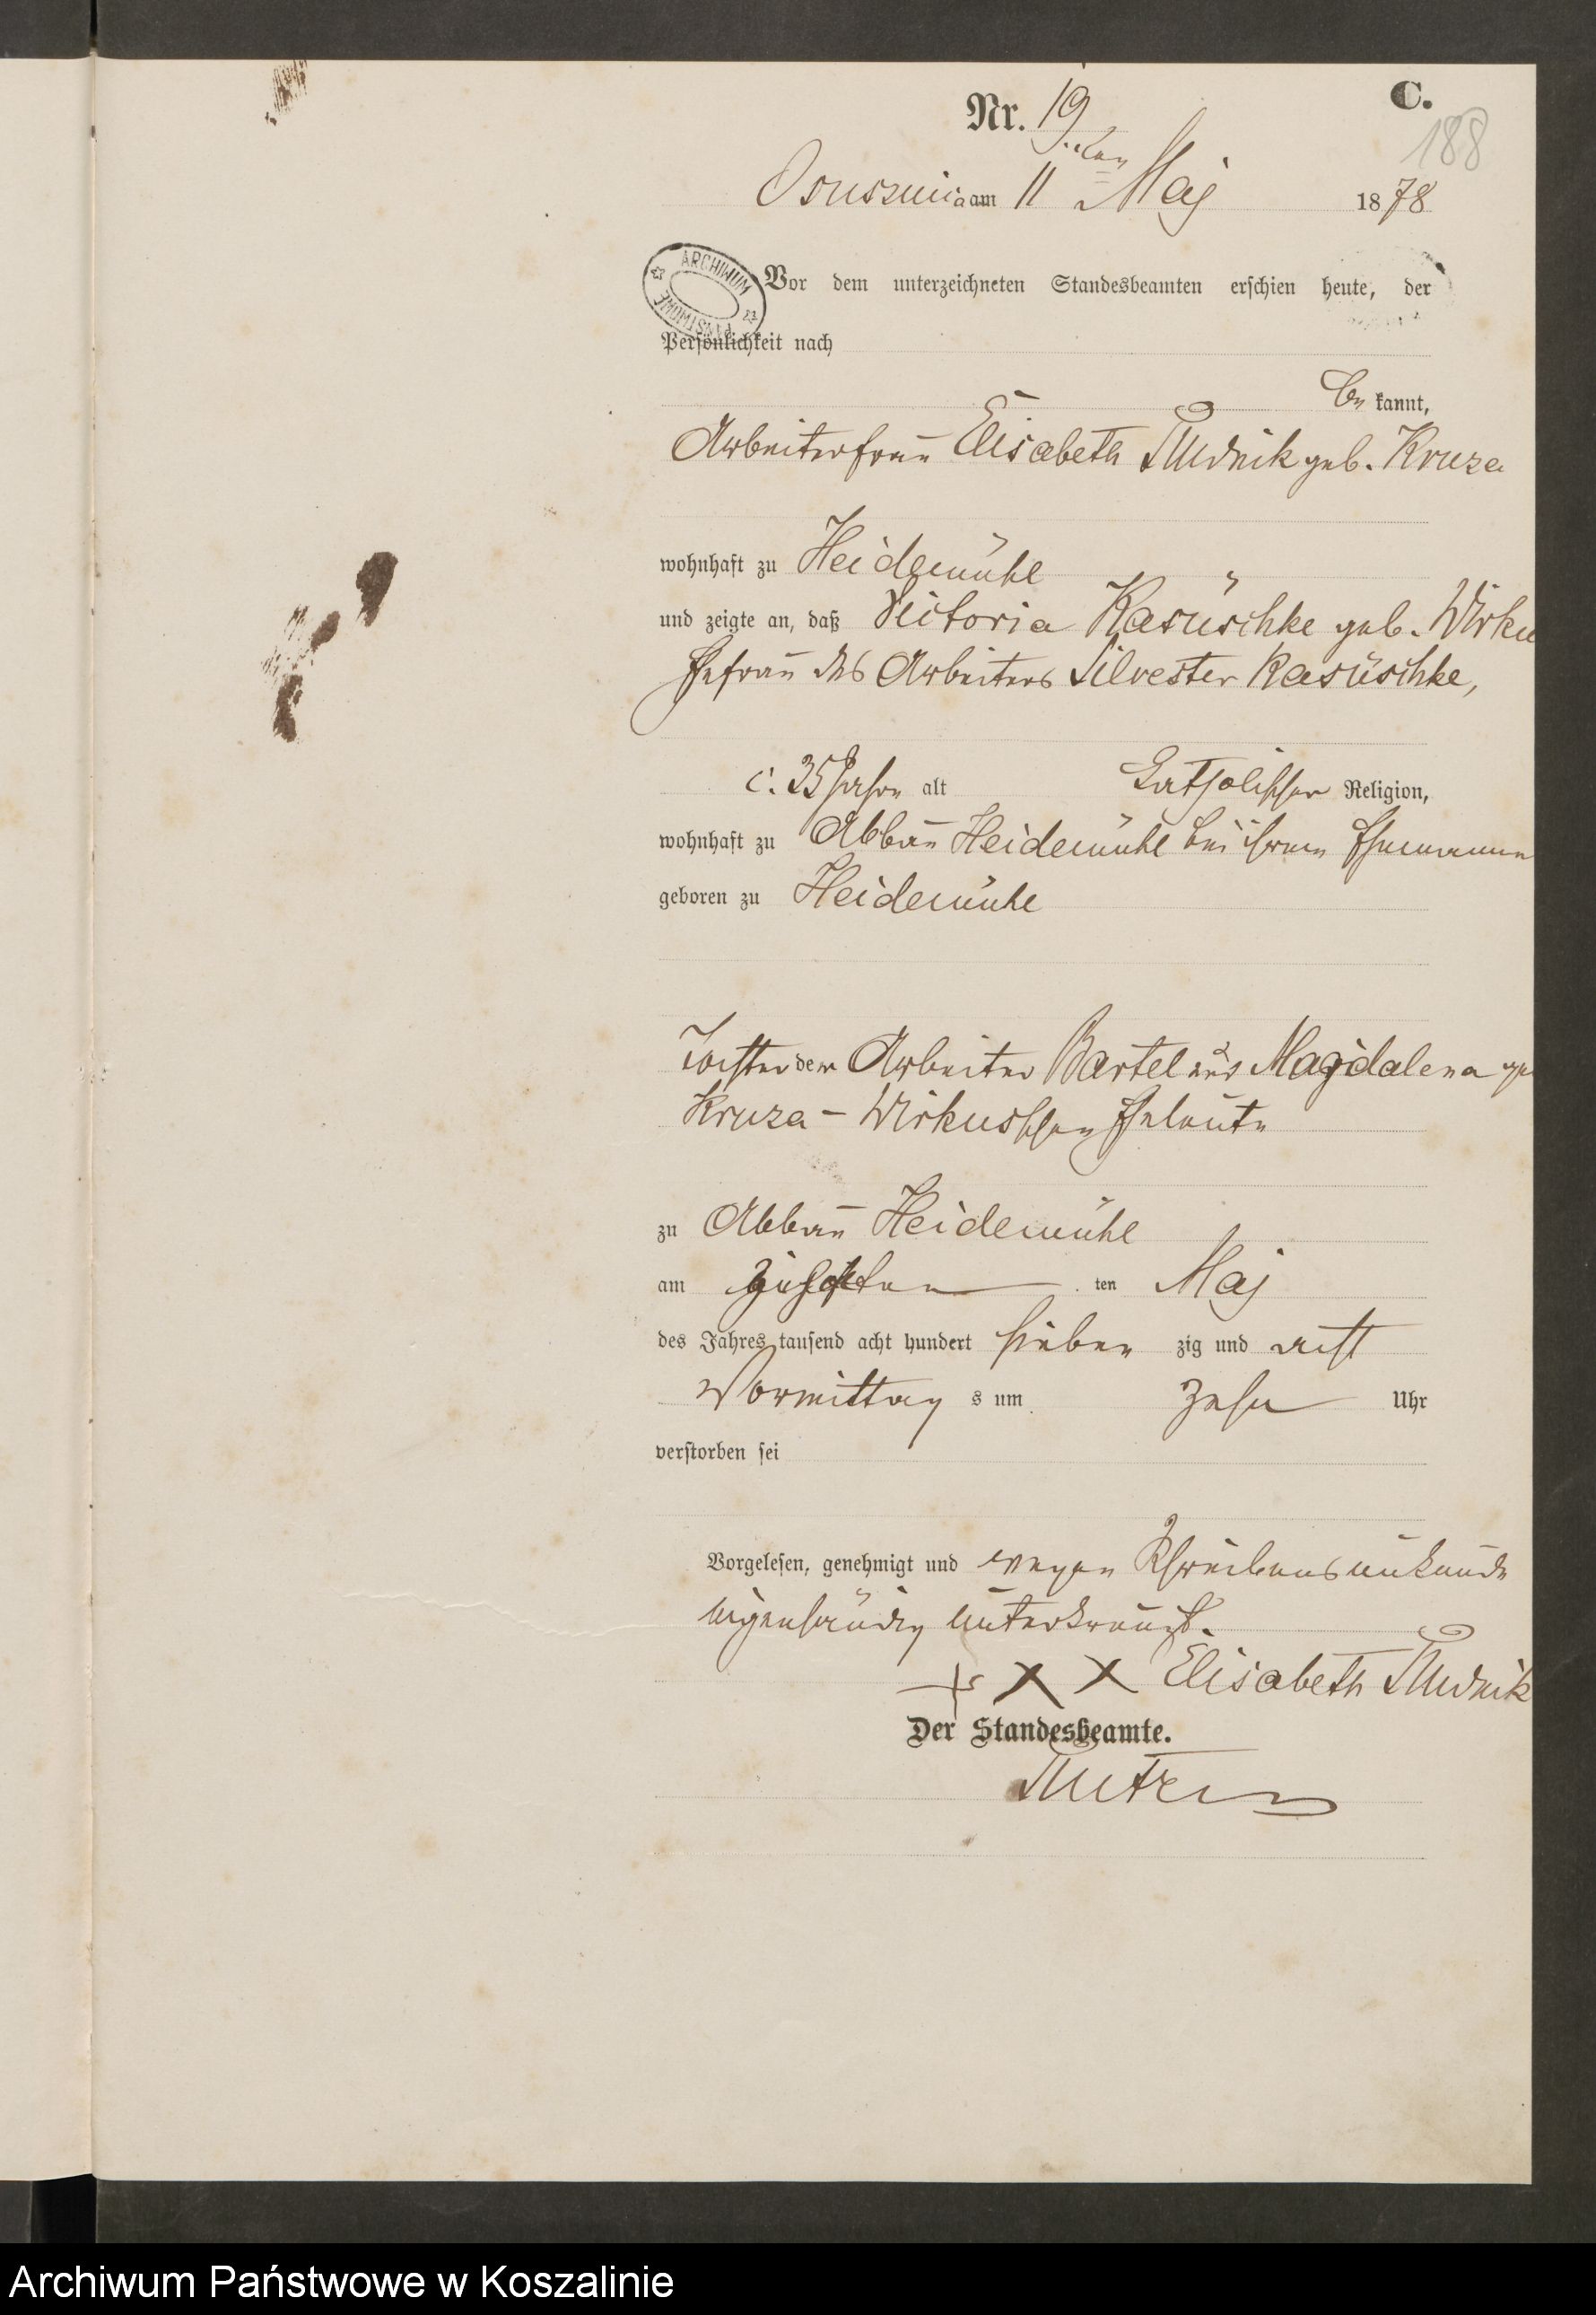 C.
Nr. 19
188
Osusznica am 11ten Maj 1878
ARCHIWUM PAŃSTWOWE
Vor dem unterzeichneten Standesbeamten erschien heute, der
Persönlichkeit nach
be kannt,
Arbeiterfrau Elisabeth Rudnik geb. Kruza
wohnhaft zu Heidemühl
und zeigte an, daß Victoria Kasuschke geb. Wirku
Ehefrau des Arbeiters Silvester Kasuschke,
c. 35 Jahre alt katholischer Religion,
wohnhaft zu Abbau Heidemühl bei ihrem Ehemanne
geboren zu Heidemühl
Tochter der Arbeiter Bartel und Magdalena
Kruza - Wirkusschen Eheleute
zu Abbau Heidemühl
am ten Maj
des Jahres tausend acht hundert sieben zig und acht
Vormittag s um zehn Uhr
verstorben sei
Vorgelesen, genehmigt und wegen Schreibensunkunde
eigenhändig unterkreuzt.
+ x x Elisabeth Rudnik
Der Standesbeamte.
Archiwum Państwowe w Koszalinie